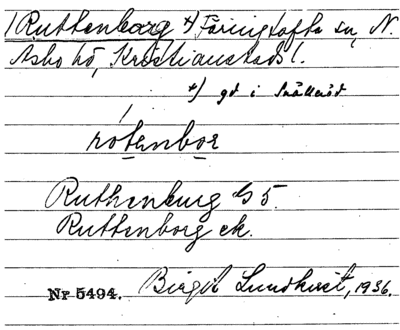 /Ruttenborg *) Färingtofta sn, N.
Åsbo hd, Kristianstads l.
*) gd i Snälleröd
rótenbor
Ruthenburg G 5.
Ruttenborg ek.
Nr 5494. Birgit Lundkvist, 1936.